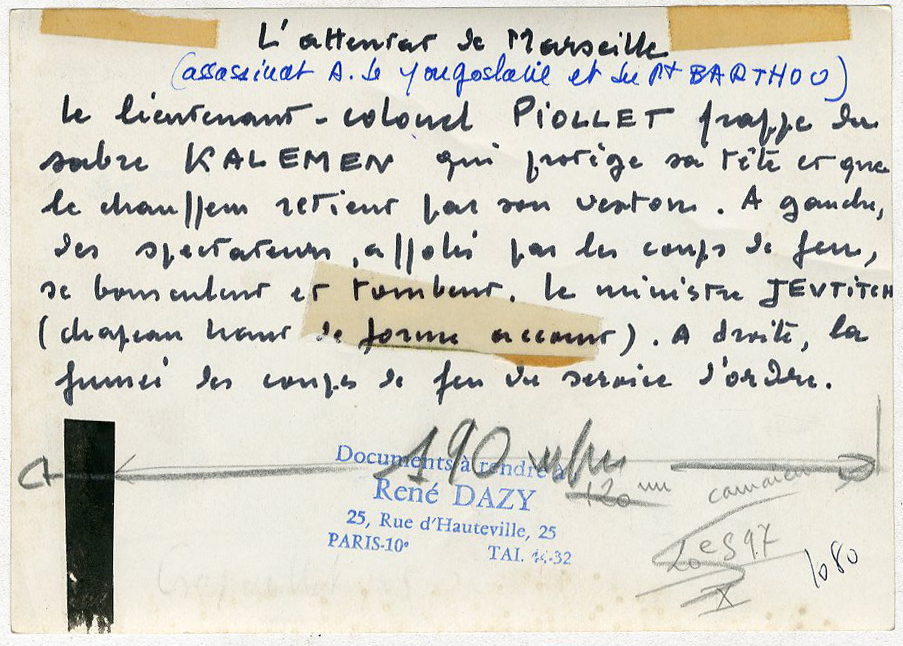 L'attentat de Marseille
(assassinat A. de Yougoslavie et du Pt BARTHOU)
Le lieutenant-colonel PIOLLET frappe du
sabre KALEMEN qui protège sa tête et que
le chauffeur retient par son veston. A gauche,
des spectateurs, affolés par les coups de feu,
se bousculent et tombent. Le ministre JEVTITCH
(chapeau haut de forme accourt). A droite, la
fumée des coups de feu du service d'ordre.
190
Documents à rendre à
120 mm
René DAZY
25, Rue d'Hauteville, 25
PARIS-10e
TAI. -32
20e S 97
X
1080